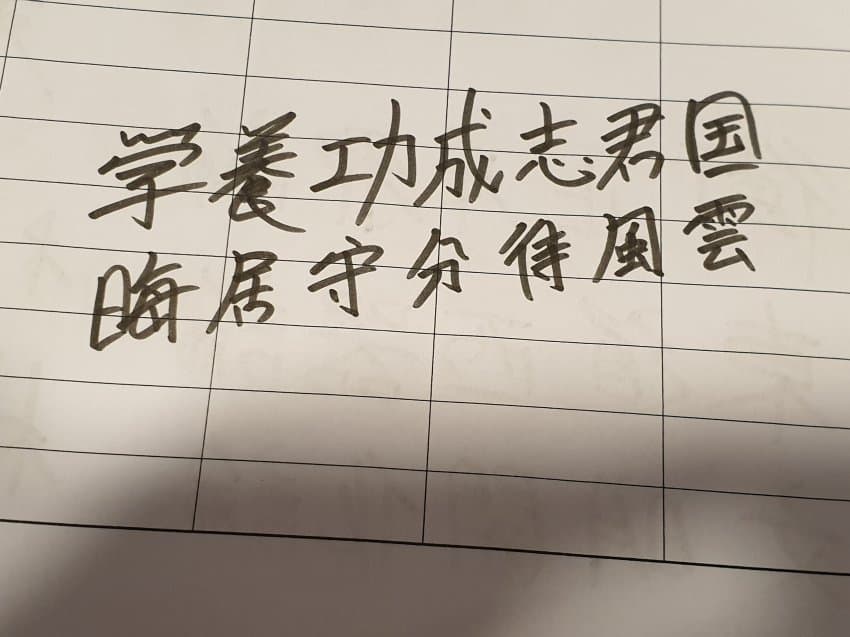 学養功成志君国
晦居守分待風雲